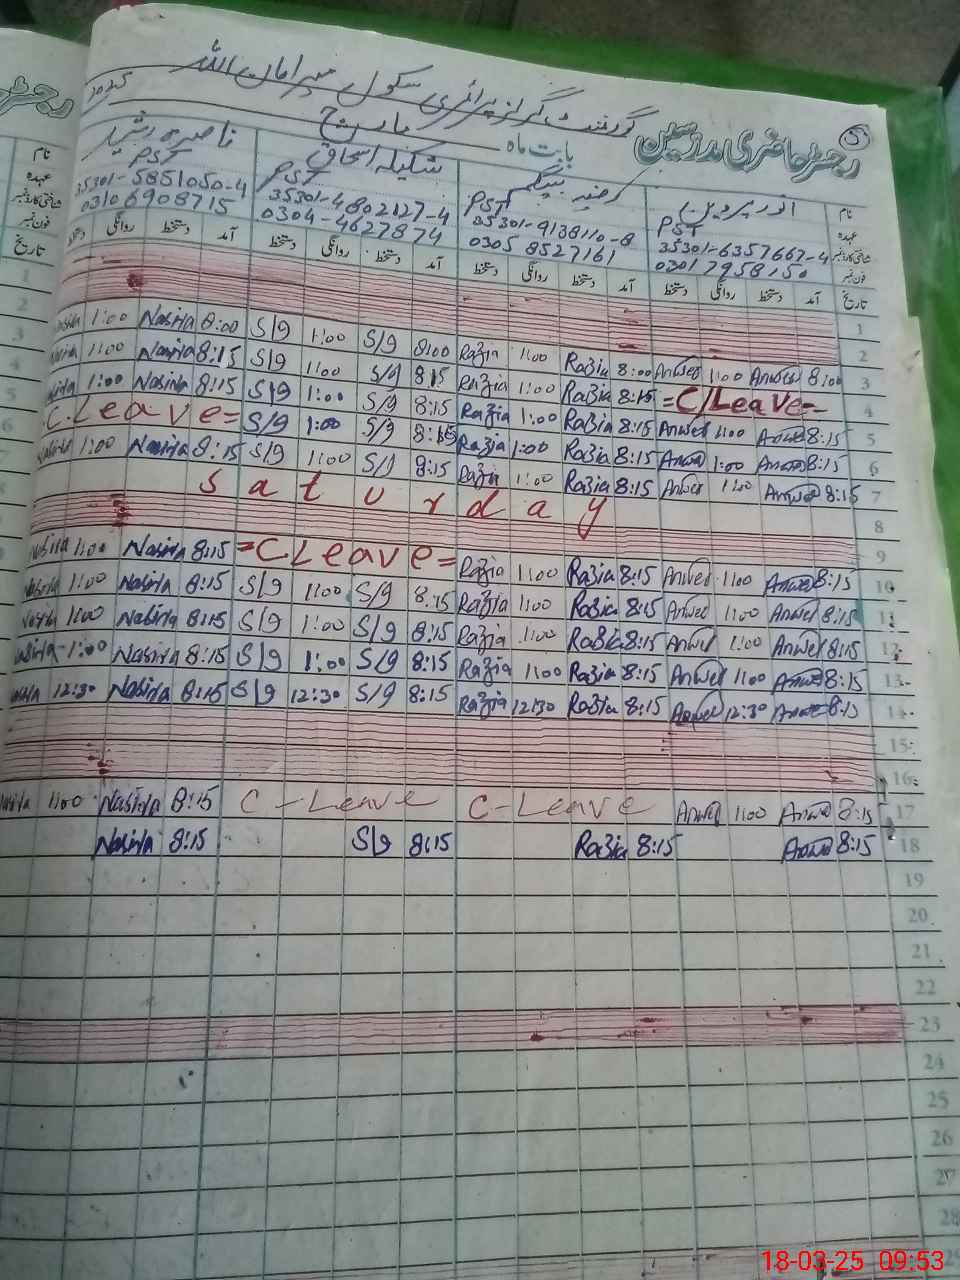 گورنمنٹ گرلز پرائمری سکول میر امان اللہ
رجسٹر حاضری مدرسین بابت ماہ مارچ 2025
5
نام انور پروین رضیہ بیگم شکیلہ اسحاق ناصرہ رشید
عہدہ PST PST PST PST
35301-6357667-4 35301-9138110-8 35301-4802127-4 35301-5851050-4
فون نمبر 0301 7958150 0305 8527161 0304-4627874 0310 6908715
تاریخ آمد دستخط روانگی دستخط آمد دستخط روانگی دستخط آمد دستخط روانگی دستخط آمد دستخط روانگی
1
2
Nasira 1:00 Nasira 8:00 S/9 1:00 S/9 8:00 Razia 1:00 Razia 8:00 Anwer 1:00 Anwer 8:00 3
Nasira 1:00 Nasira 8:15 S/9 1:00 S/9 8:15 Razia 1:00 Razia 8:15 =C/Leave=- 4
Nasira 1:00 Nasira 8:15 S/9 1:00 S/9 8:15 Razia 1:00 Razia 8:15 Anwer 1:00 Anwer 8:15 5
C.Leave= S/9 1:00 S/9 8:15 Razia 1:00 Razia 8:15 Anwer 1:00 Anwer 8:15 6
Nasira 1:00 Nasira 8:15 S/9 1:00 S/9 8:15 Razia 1:00 Razia 8:15 Anwer 1:00 Anwer 8:15 7
Saturday 8
9
Nasira 1:00 Nasira 8:15 =C Leave= Razia 1:00 Razia 8:15 Anwer 1:00 Anwer 8:15 10
Nasira 1:00 Nasira 8:15 S/9 1:00 S/9 8:15 Razia 1:00 Razia 8:15 Anwer 1:00 Anwer 8:15 11
Nasira 1:00 Nasira 8:15 S/9 1:00 S/9 8:15 Razia 1:00 Razia 8:15 Anwer 1:00 Anwer 8:15 12
Nasira 1:00 Nasira 8:15 S/9 1:00 S/9 8:15 Razia 1:00 Razia 8:15 Anwer 1:00 Anwer 8:15 13
Nasira 12:30 Nasira 8:15 S/9 12:30 S/9 8:15 Razia 12:30 Razia 8:15 Anwer 12:30 Anwer 8:15 14
15
16
Nasira 1:00 Nasira 8:15 C-Leave C-Leave Anwer 1:00 Anwer 8:15 17
Nasira 8:15 S/9 8:15 Razia 8:15 Anwer 8:15 18
19
20
21
22
23
24
25
26
27
28
18-03-25 09:53